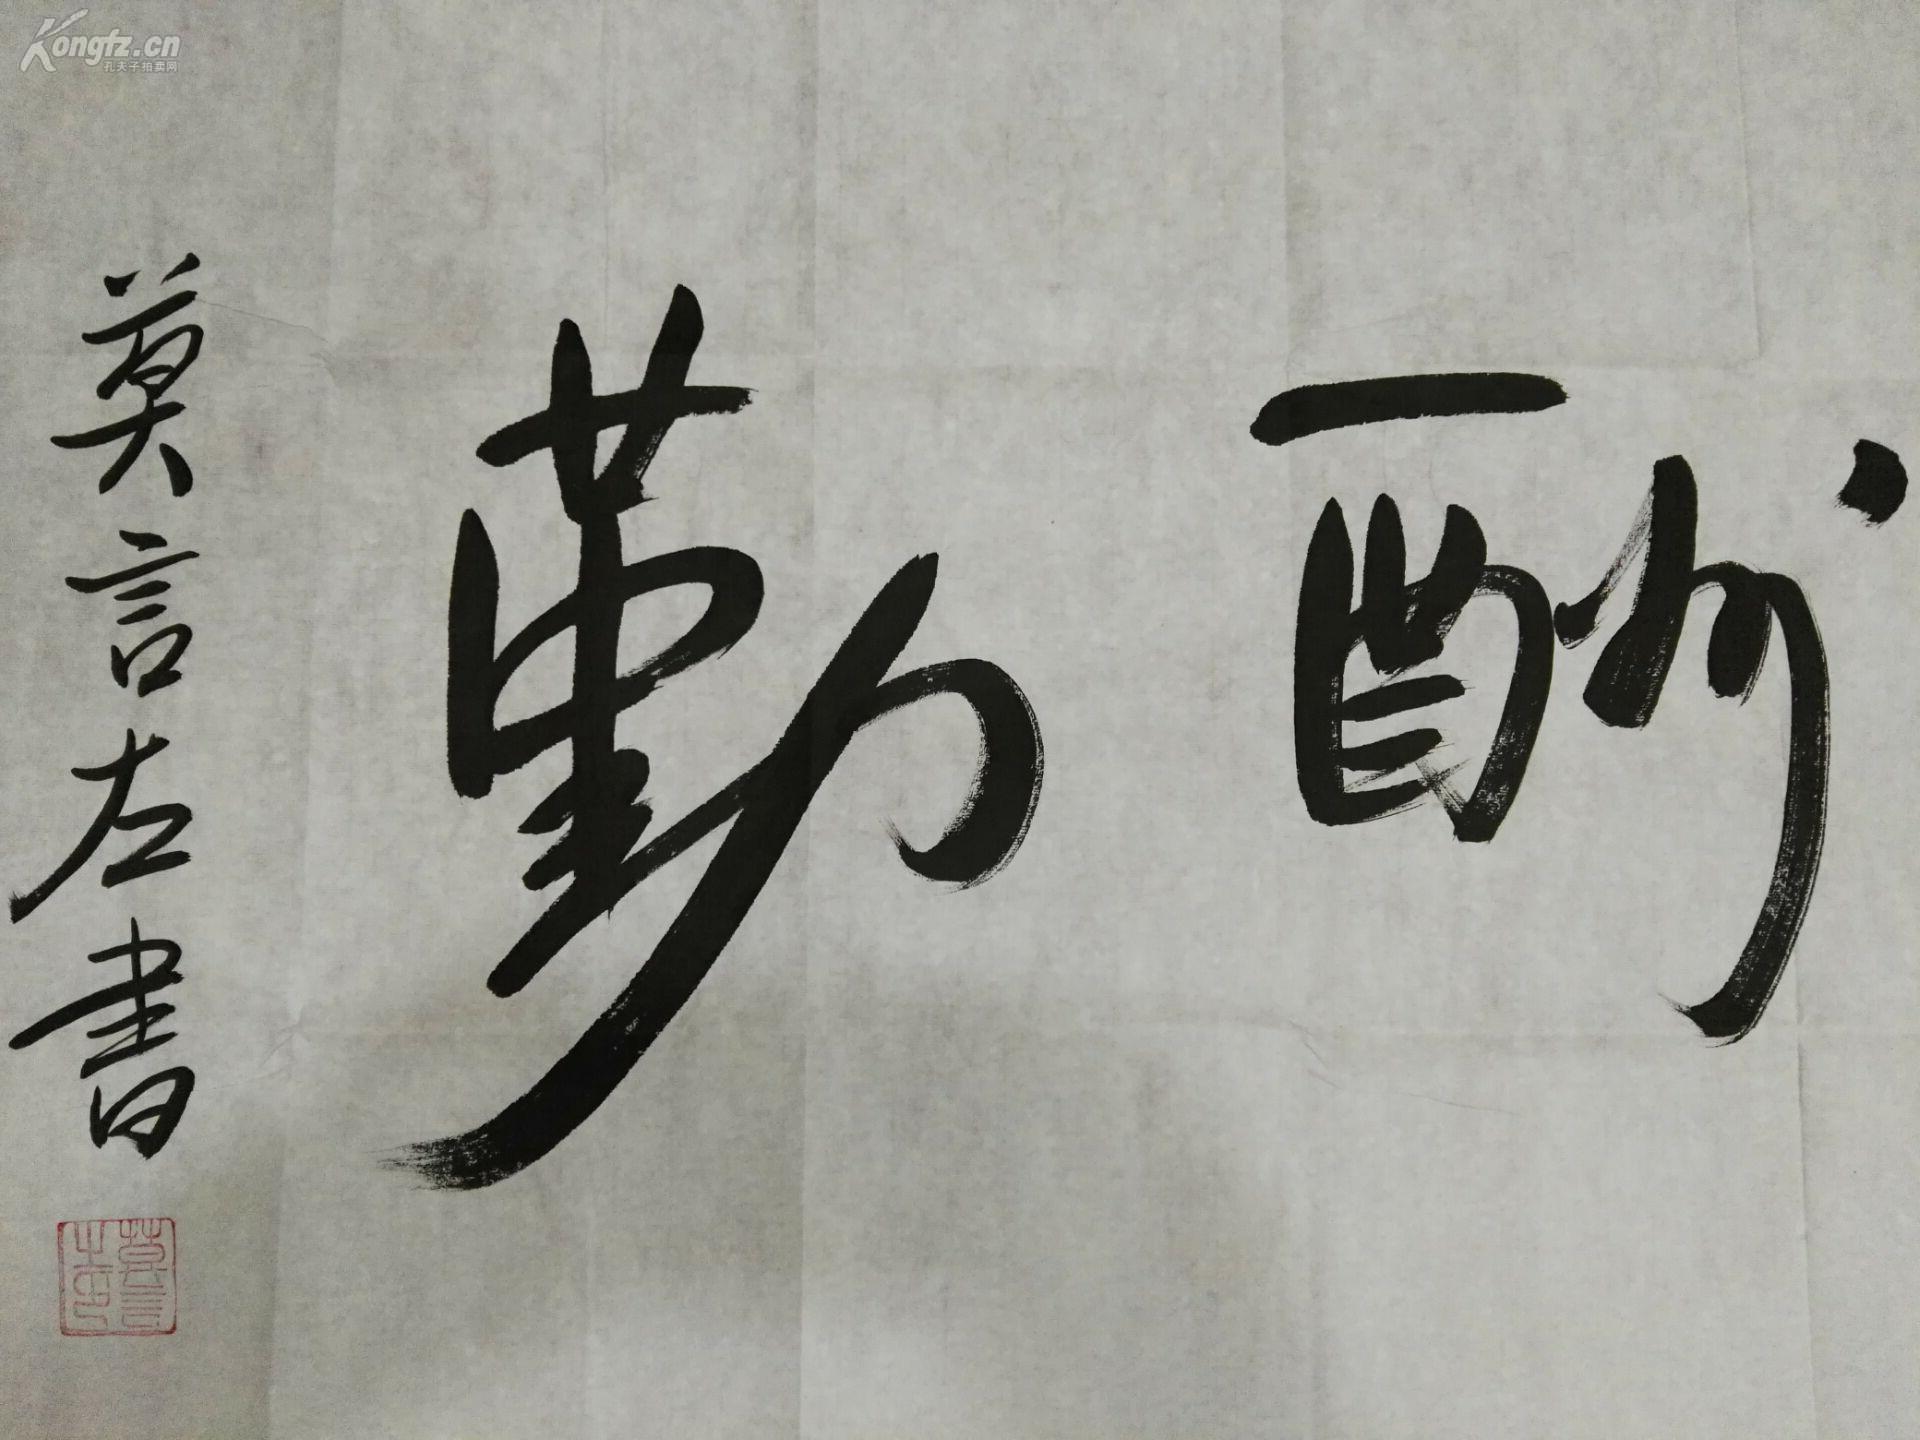 Kongfz.cn
孔夫子拍卖网
酬勤
莫言左書